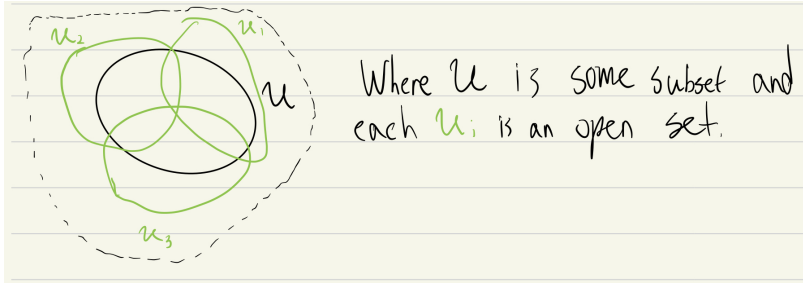 U₂
U₁
U
U₃
Where U is some subset and
each Uᵢ is an open set.